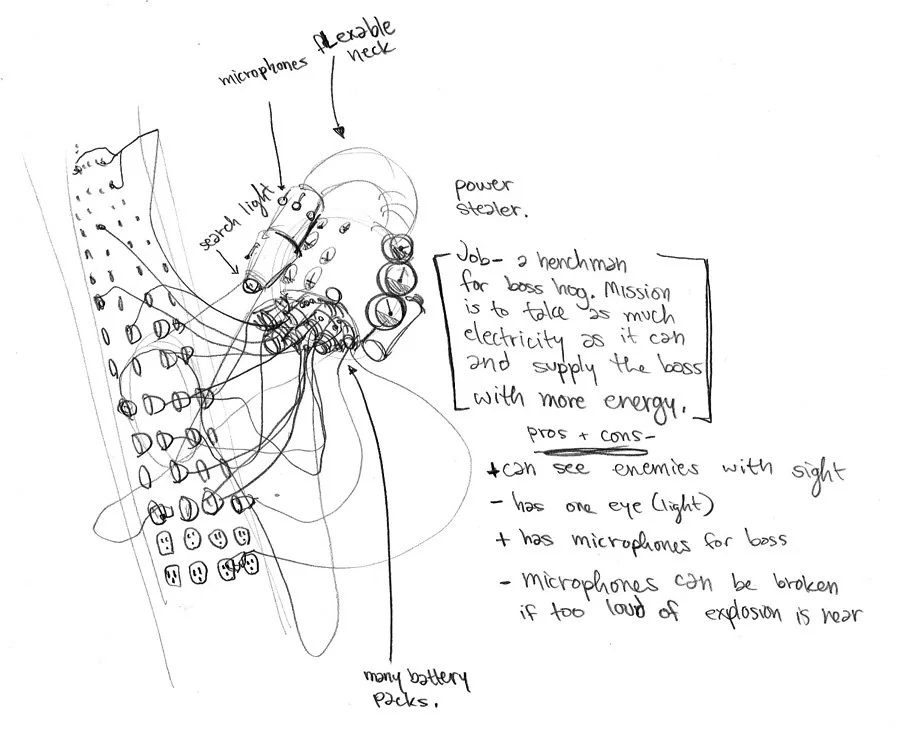 flexable
neck
microphones
search light
power
stealer.
Job- a henchman
for boss hog. Mission
is to take as much
electricity as it can
and supply the boss
with more energy.
pros + cons-
+can see enemies with sight
- has one eye (light)
+ has microphones for boss
- microphones can be broken
if too loud of explosion is near
many battery
packs.